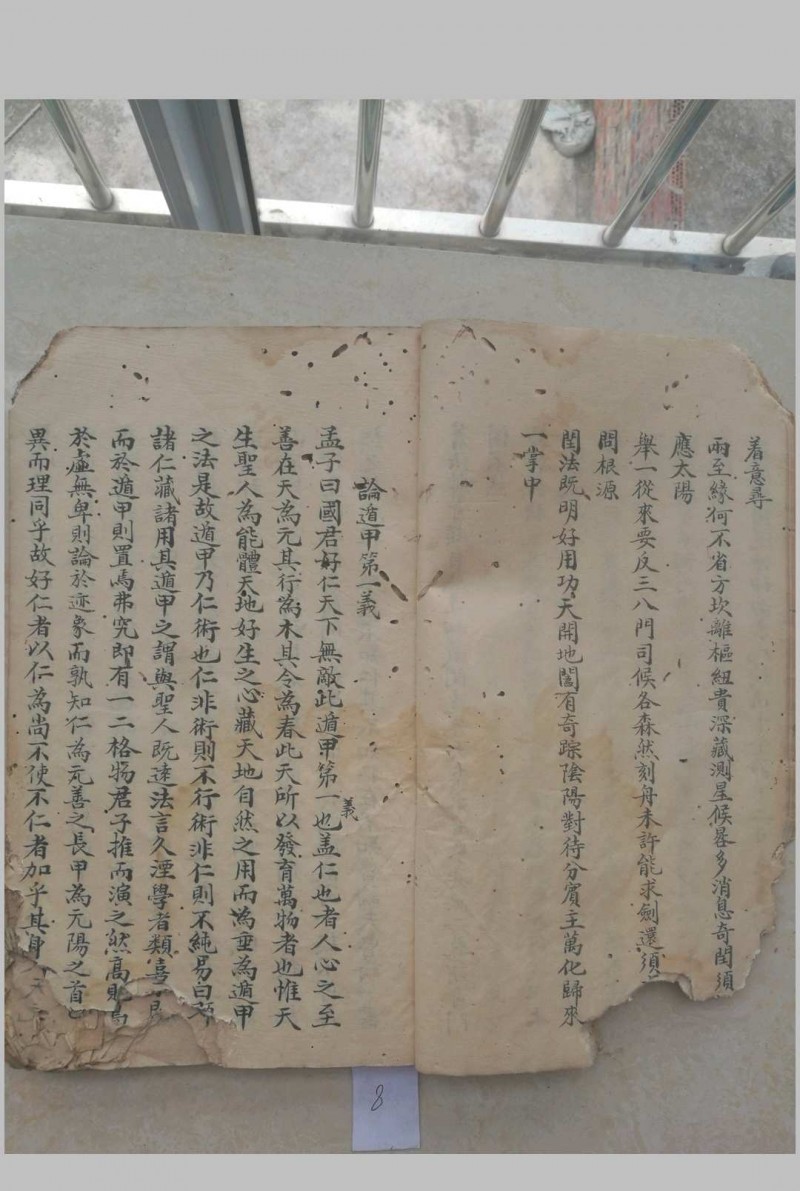 着意尋
兩至緣何不省方坎離樞紐貴深藏測星候晷多消息奇閏須
應太陽
舉一從來要反三八門司候各森然刻舟未許能求劍還須
問根源
閏法既明好用功天開地闔有奇踪陰陽對待分賓主萬化歸來
一掌中
論遁甲第一義
孟子曰國君好仁天下無敵此遁甲第一義也盖仁也者人心之至
善在天為元其行為木其令為春此天所以發育萬物者也惟天
生聖人為能體天地好生之心藏天地自然之用而為垂為遁甲
之法是故遁甲乃仁術也仁非術則不行術非仁則不純易曰顯
諸仁藏諸用其遁甲之謂與聖人既遠法言久湮學者類喜
而於遁甲則置焉弗究即有一二格物君子推而演之然高則
於虛無卑則論於迹象而孰知仁為元善之長甲為元陽之首
異而理同乎故好仁者以仁為尚不使不仁者加乎其身
8